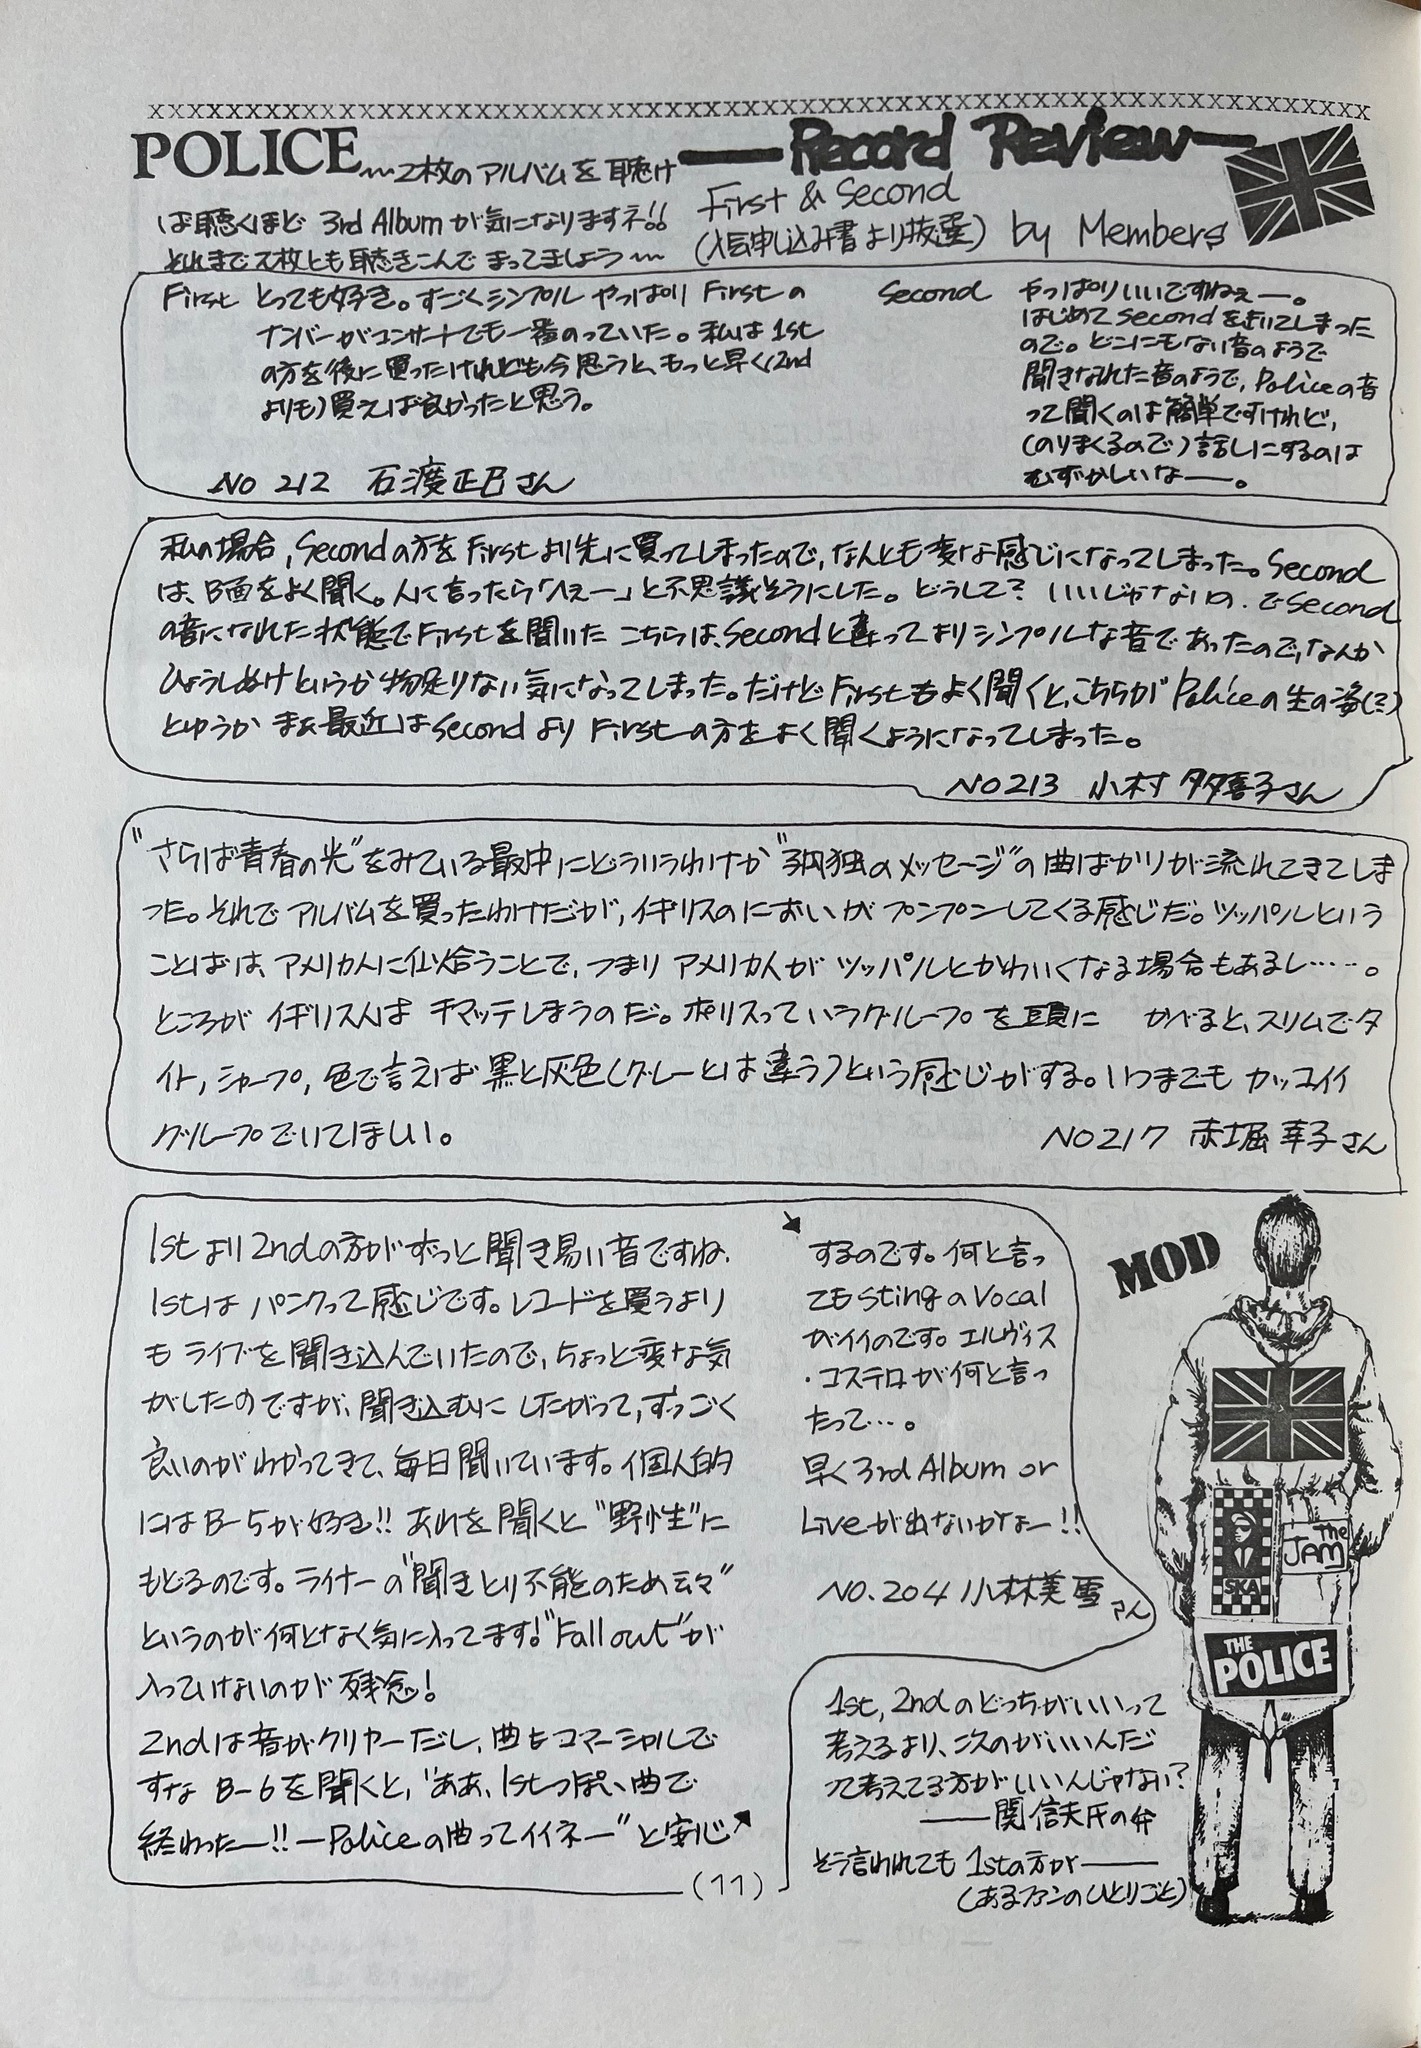 POLICE
〜2枚のアルバムを聴け
ば聴くほど 3rd Albumが気になりますネ!!
それまで2枚とも聴きこんで まってましょう〜
Record Review
First & Second
(入会申し込み書より抜選) by Members
First とっても好き。すごくシンプル やっぱり Firstの
ナンバーがコンサートでも一番のっていた。私は1st
の方を後に買ったけれども今思うと、もっと早く(2nd
よりも)買えば良かったと思う。
Second やっぱりいいですねぇー。
はじめてSecondをきいてしまった
ので。どこにもない音のようで
聞きなれた音のようで、Policeの音
って聞くのは簡単ですけれど,
(のりまくるので)話しにするのは
むずかしいなー。
NO 212 石渡正巳さん
私の場合,Secondの方をFirstより先に買ってしまったので,なんとも変な感じになってしまった。Second
は、B面をよく聞く。人に言ったら「へぇー」と不思議そうにした。どうして? いいじゃないの.でSecond
の音になれた状態でFirstを聞いた こちらは、Secondと違ってよりシンプルな音であったので,なんか
ひょうしぬけというか物足りない気になってしまった。だけどFirstもよく聞くと,こちらがPoliceの生の姿(?)
とゆうか まぁ最近はSecondより Firstの方をよく聞くようになってしまった。
NO213 小村 多喜子さん
"さらば青春の光"をみている最中にどういうわけか"孤独のメッセージ"の曲ばかりが流れてきてしま
った。それでアルバムを買ったわけだが,イギリスのにおいがプンプンしてくる感じだ。ツッパルという
ことばは、アメリカ人に似合うことで,つまり アメリカ人が ツッパルとかわいくなる場合もあるし……。
ところが イギリス人は キマッテしまうのだ。ポリスっていうグループを頭に かべると、スリムでタ
イト,シャープ,色で言えば黒と灰色(グレーとは違う)という感じがする。いつまでも カッコイイ
グループでいてほしい。
NO217 赤堀 幸子さん
1stより2ndの方がずっと聞き易い音ですね.
1stは パンクって感じです。レコードを買うより
もライブを聞き込んでいたので,ちょっと変な気
がしたのですが、聞き込むにしたがって,すっごく
良いのがわかってきて、毎日聞いています。個人的
にはB-5が好き!! あれを聞くと"野性"に
もどるのです。ライナーの"聞きとり不能のため云々"
というのが何となく気に入ってます!"Fall out"が
入っていないのが残念!
2ndは音がクリヤーだし、曲もコマーシャルで
すな B-6を聞くと,"ああ、1stっぽい曲で
終わったー!!ーPoliceの曲ってイイネー"と安心
するのです。何と言っ
てもstingのVocal
がイイのです。エルヴィス
・コステロが何と言っ
たって…。
早く3rd Album or
Liveが出ないかなー!!
NO.204 小林美雪さん
MOD
SKA
The
JAM
THE
POLICE
1st,2ndのどっちがいいって
考えるより、次のがいいんだ
って考えてる方がいいんじゃない?
——関 信夫氏の弁
そう言われても 1stの方が——
(あるファンのひとりごと)
(11)